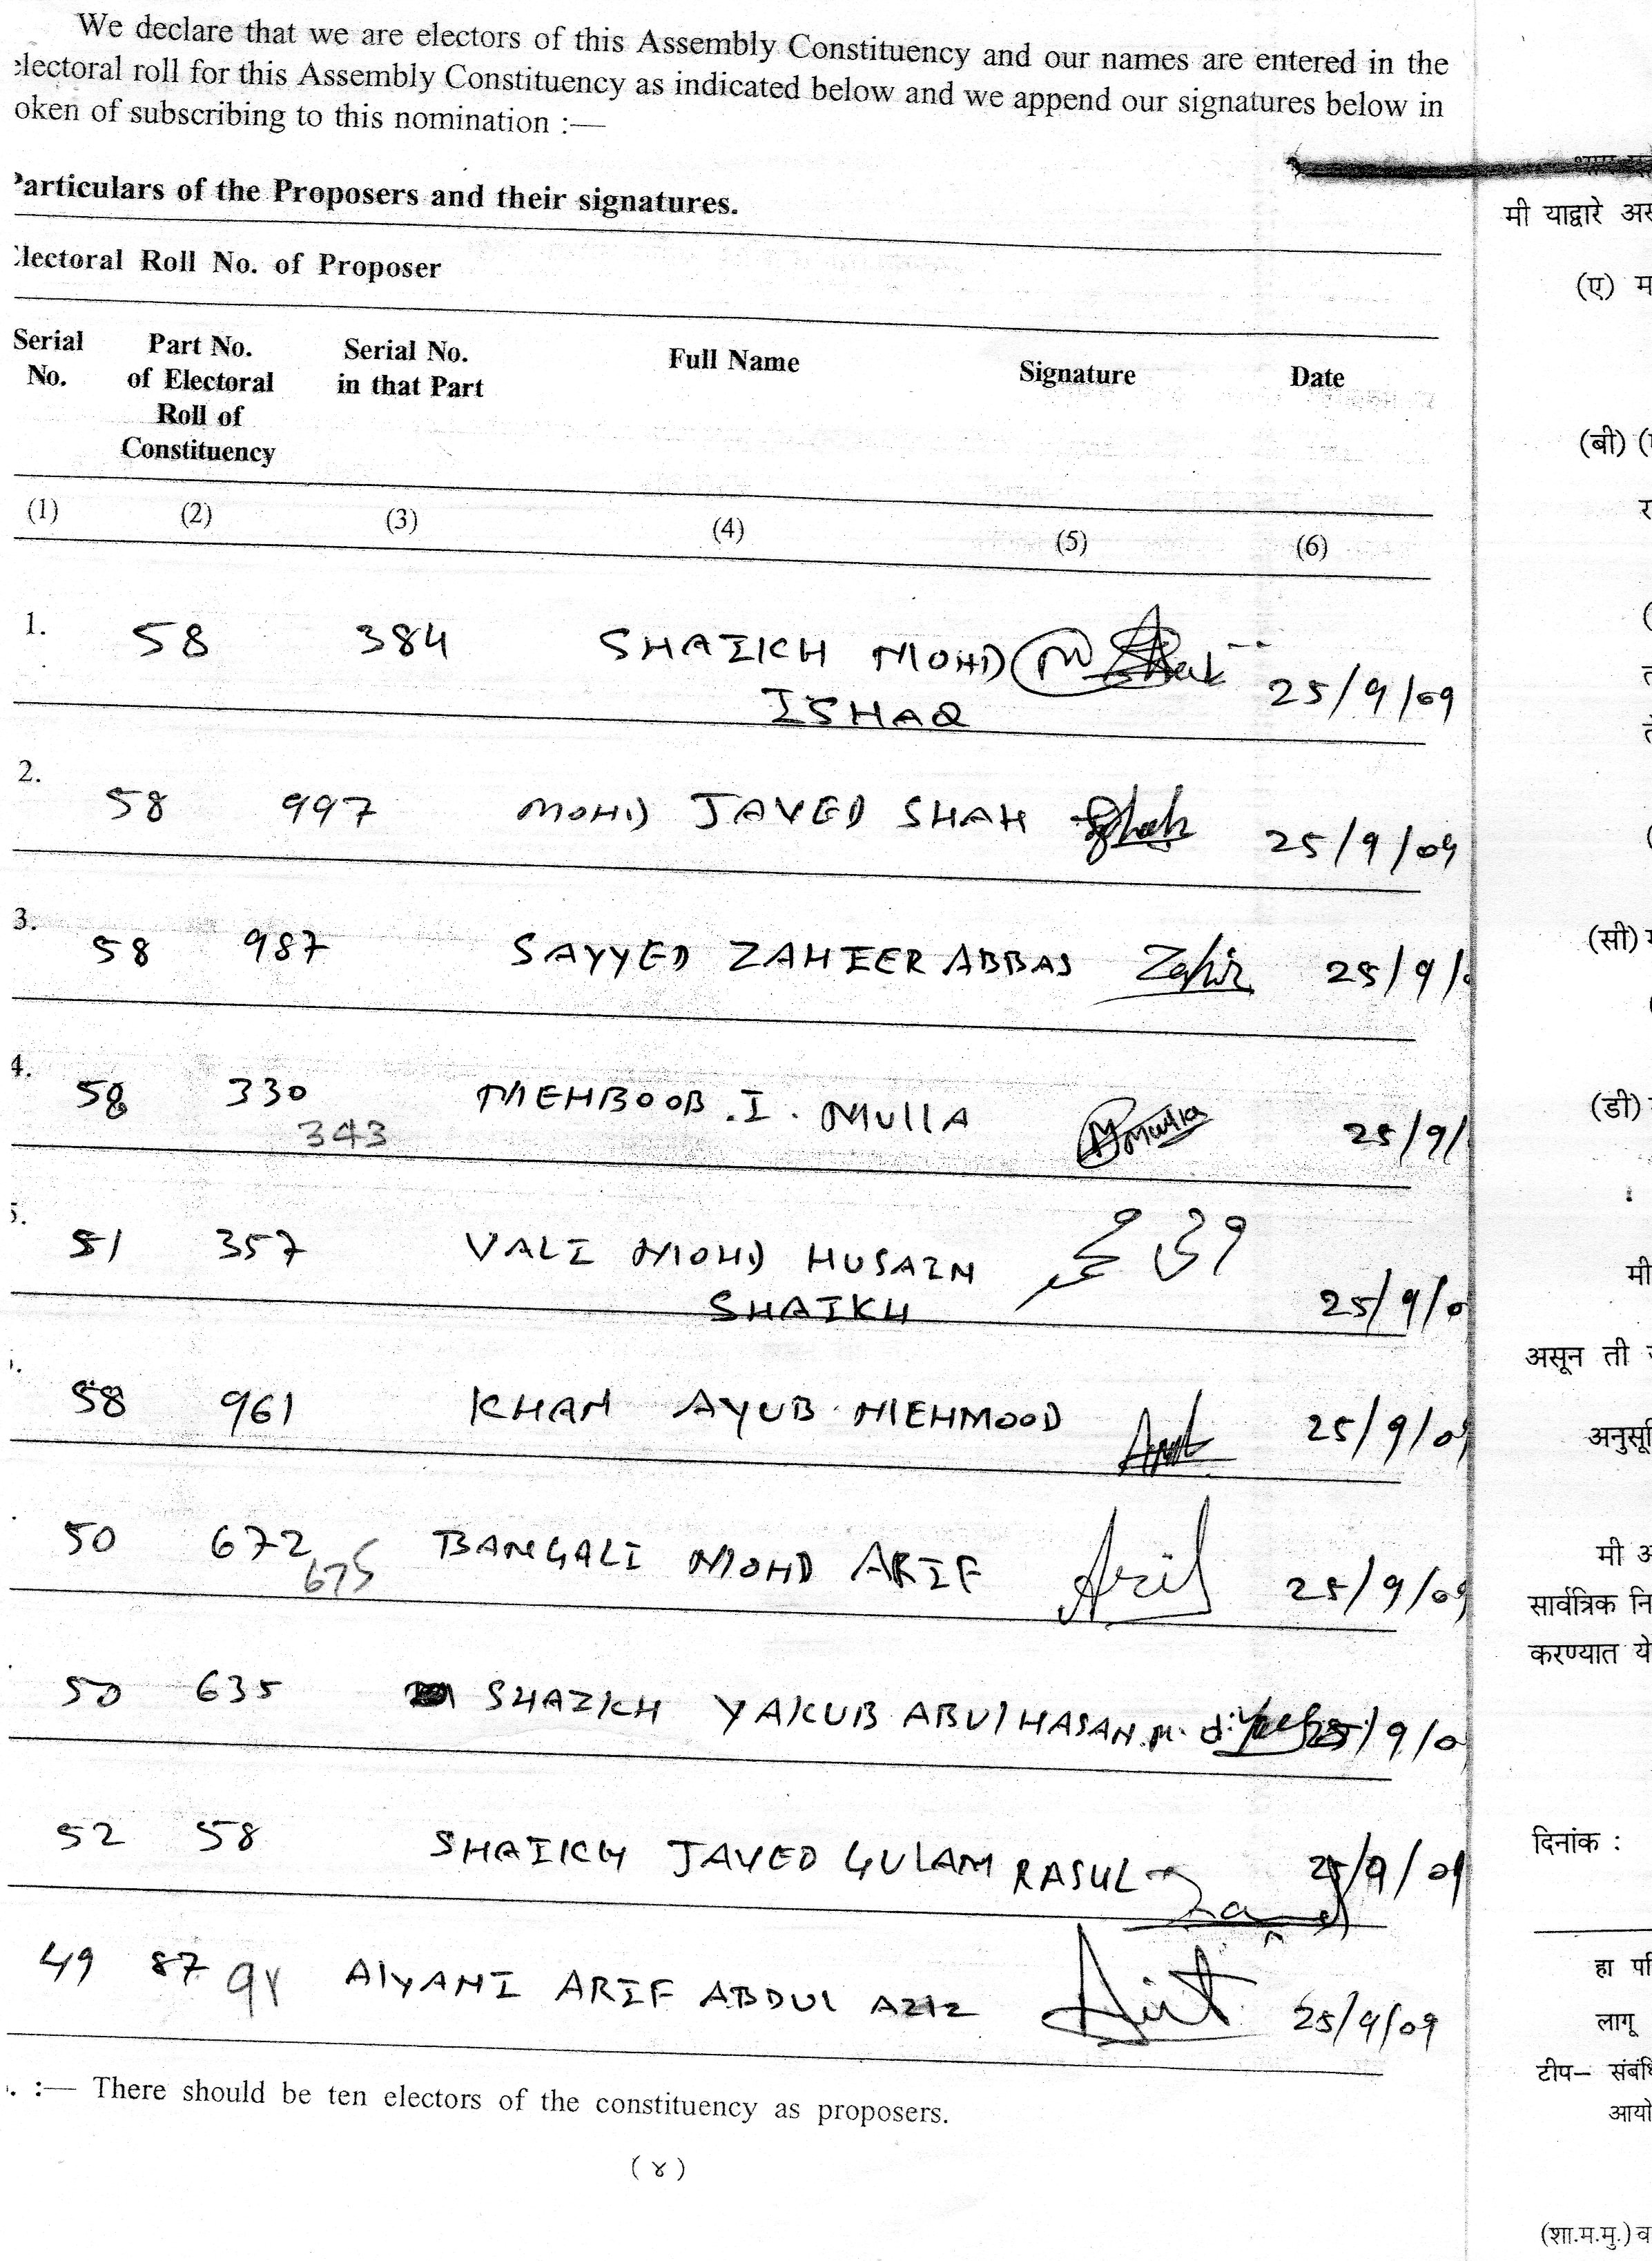 We declare that we are electors of this Assembly Constituency and our names are entered in the
electoral roll for this Assembly Constituency as indicated below and we append our signatures below in
oken of subscribing to this nomination :—
articulars of the Proposers and their signatures.
lectoral Roll No. of Proposer
Serial No. Part No. of Electoral Roll of Constituency Serial No. in that Part Full Name Signature Date
(1) (2) (3) (4) (5) (6)
1. 58 384 SHAIKH MOHD 25/9/09
ISHAQ
2. 58 997 MOHD JAVED SHAH Shah 25/9/09
3. 58 987 SAYYED ZAHEER ABBAS Zahir 25/9/
4. 58 330 MEHBOOB . I . MULLA Mmulla 25/9/
343
5. 51 357 VALI MOHD HUSAIN ولی محمد
SHAIKH 25/9/0
58 961 KHAN AYUB MEHMOOD 25/9/09
50 672 BANGALI MOHD ARIF Arif 25/9/09
675
50 635 SHAIKH YAKUB ABUL HASAN 25/9/0
52 58 SHAIKH JAVED GULAM RASUL 25/9/09
49 87 91 AIYANI ARIF ABDUL AZIZ 25/9/09
. :— There should be ten electors of the constituency as proposers.
(४)
मी याद्वारे
(ए)
(बी)
(सी)
(डी)
मी
असून ती
मी
सार्वत्रिक
करण्यात
दिनांक :
हा
लागू
टीप—
(शा.म.मु.) व